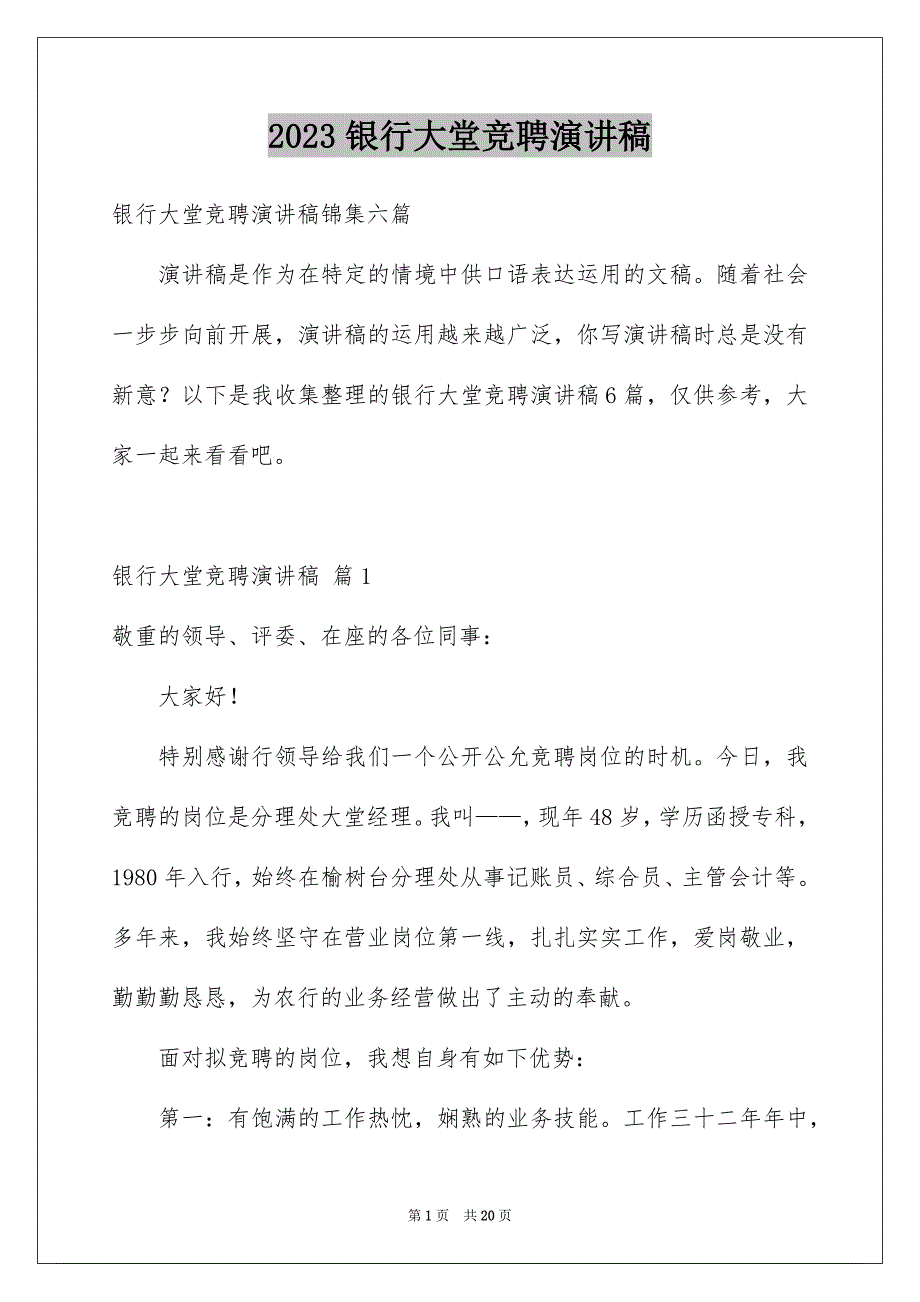 2023银行大堂竞聘演讲稿
银行大堂竞聘演讲稿锦集六篇
演讲稿是作为在特定的情境中供口语表达运用的文稿。随着社会
一步步向前开展，演讲稿的运用越来越广泛，你写演讲稿时总是没有
新意？以下是我收集整理的银行大堂竞聘演讲稿6篇，仅供参考，大
家一起来看看吧。
银行大堂竞聘演讲稿 篇1
敬重的领导、评委、在座的各位同事：
大家好！
特别感谢行领导给我们一个公开公允竞聘岗位的时机。今日，我
竞聘的岗位是分理处大堂经理。我叫——，现年48岁，学历函授专科，
1980年入行，始终在榆树台分理处从事记账员、综合员、主管会计等。
多年来，我始终坚守在营业岗位第一线，扎扎实实工作，爱岗敬业，
勤勤勤恳恳，为农行的业务经营做出了主动的奉献。
面对拟竞聘的岗位，我想自身有如下优势：
第一：有饱满的工作热忱，娴熟的业务技能。工作三十二年年中，
第1页 共20页